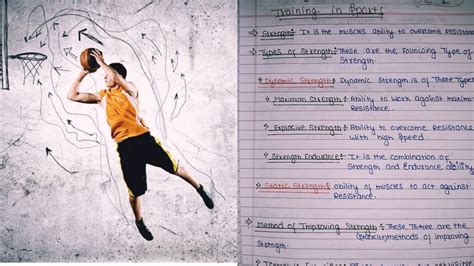 Training in Sports
Strength:- It is the muscles ability to overcome resistance
Types of Strength:- These are the following Type of
Strength
Dynamic Strength:- Dynamic Strength is of Three Type
Maximum Strength:- Ability to work against maximum
Resistance.
Explosive Strength:- Ability to overcome Resistance
with high speed.
Strength Endurance:- It is the combination of
Strength and Endurance ability
Static Strength:- ability of muscles to act against
Resistance.
Method of Improving Strength:- These Three are the
methods of Improving
Strength